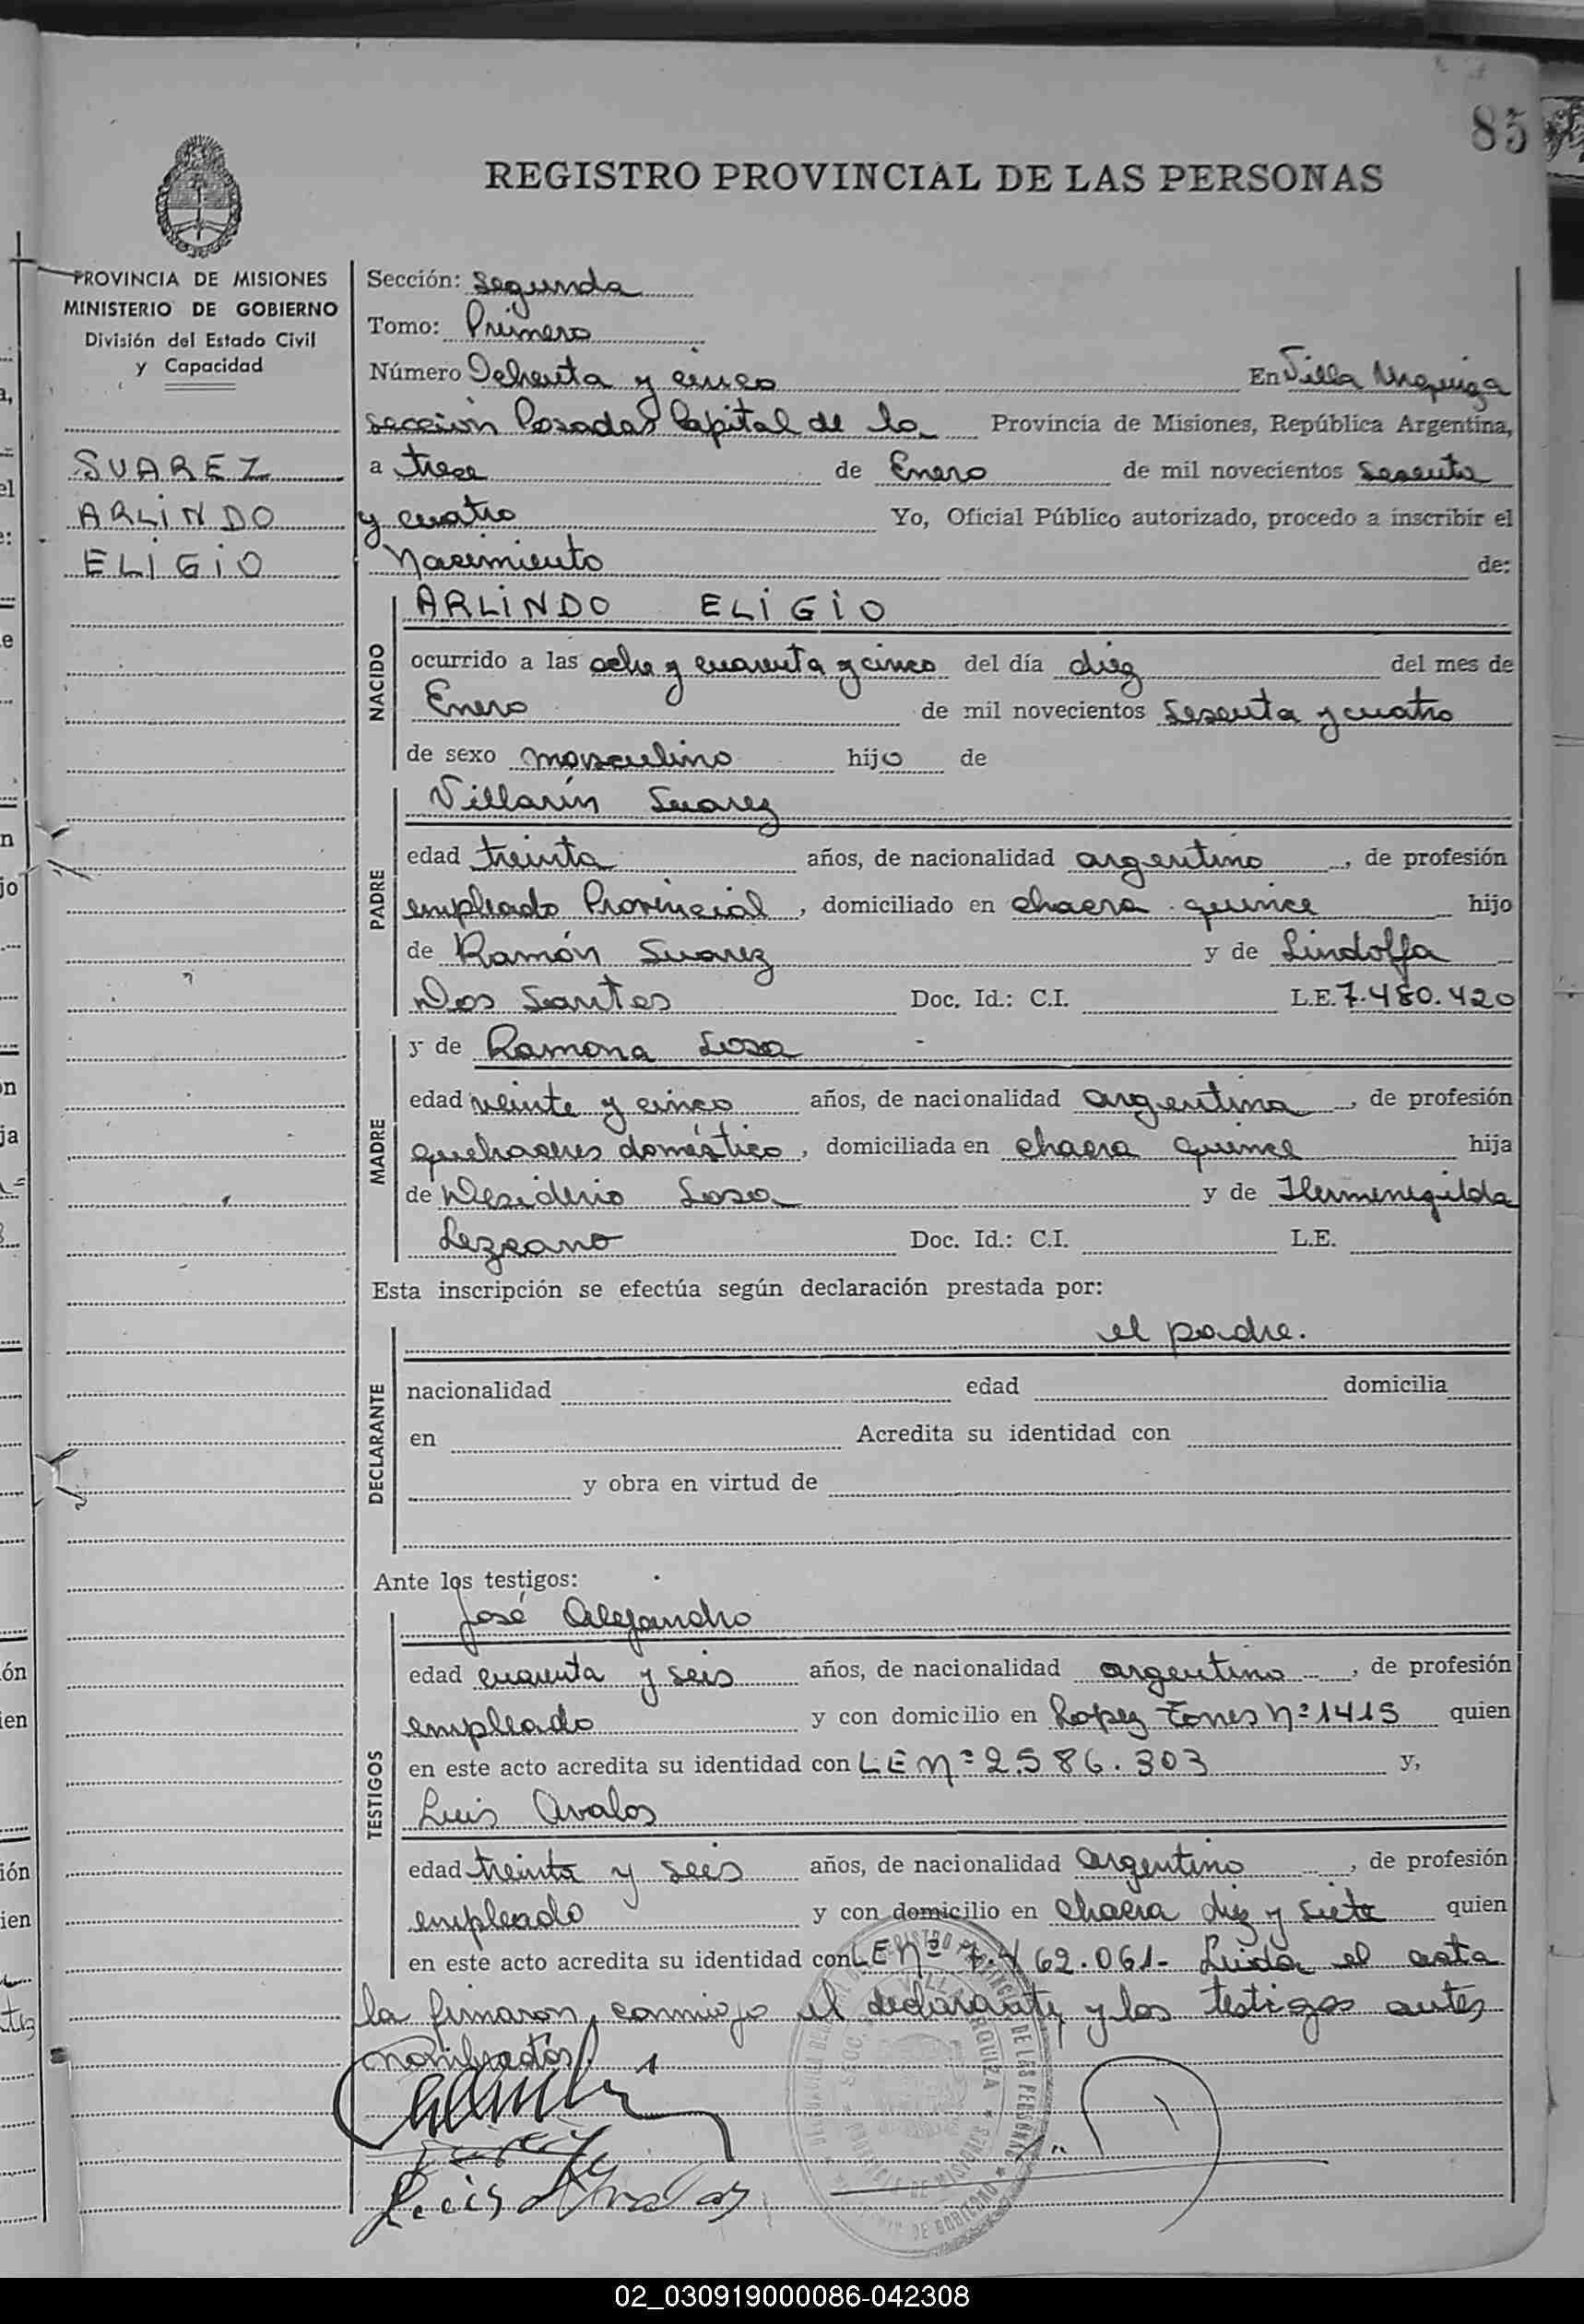 85
REGISTRO PROVINCIAL DE LAS PERSONAS
PROVINCIA DE MISIONES
MINISTERIO DE GOBIERNO
División del Estado Civil
y Capacidad
SUAREZ
ARLINDO
ELIGIO
Sección: Segunda
Tomo: Primero
Número Ochenta y cinco En Villa Urquiza
sección Posadas Capital de la Provincia de Misiones, República Argentina,
a trece de Enero de mil novecientos sesenta
y cuatro Yo, Oficial Público autorizado, procedo a inscribir el
Nacimiento de:
NACIDO
ARLINDO ELIGIO
ocurrido a las ocho y cuarenta y cinco del día diez del mes de
Enero de mil novecientos sesenta y cuatro
de sexo masculino hijo de
PADRE
Villarín Suarez
edad treinta años, de nacionalidad argentino, de profesión
empleado Provincial, domiciliado en chacra quince hijo
de Ramón Suarez y de Lindolfa
Dos Santos Doc. Id.: C.I. L.E. 7.480.420
MADRE
y de Ramona Sosa
edad veinte y cinco años, de nacionalidad argentina, de profesión
quehaceres doméstico, domiciliada en chacra quince hija
de Desiderio Sosa y de Hermenegilda
Lezcano Doc. Id.: C.I. L.E.
Esta inscripción se efectúa según declaración prestada por:
DECLARANTE
el padre.
nacionalidad edad domicilia
en Acredita su identidad con
y obra en virtud de
Ante los testigos:
TESTIGOS
José Alejandro
edad cuarenta y seis años, de nacionalidad argentino, de profesión
empleado y con domicilio en Lopez Torres Nº 1415 quien
en este acto acredita su identidad con LE Nº 2.586.303 y,
Luis Avalos
edad treinta y seis años, de nacionalidad argentino, de profesión
empleado y con domicilio en chacra diez y siete quien
en este acto acredita su identidad con LE Nº 7.462.061- Leida el acta
la firmaron, conmigo el declarante y los testigos antes
nombrados.
Luis Avalos
02_030919000086-042308